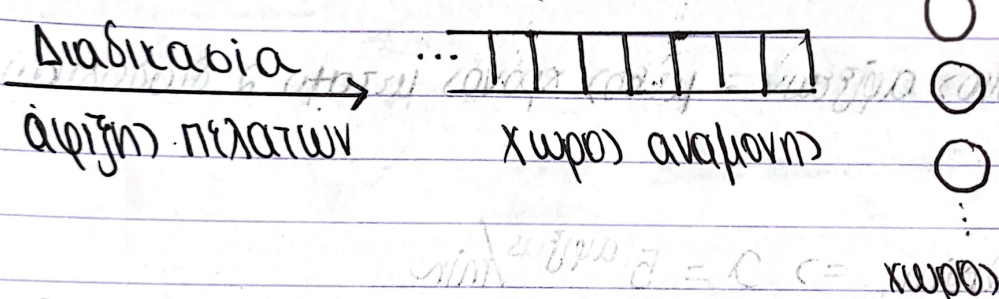 Διαδικασία
...
άφιξης πελατών χώρος αναμονης
χωρος